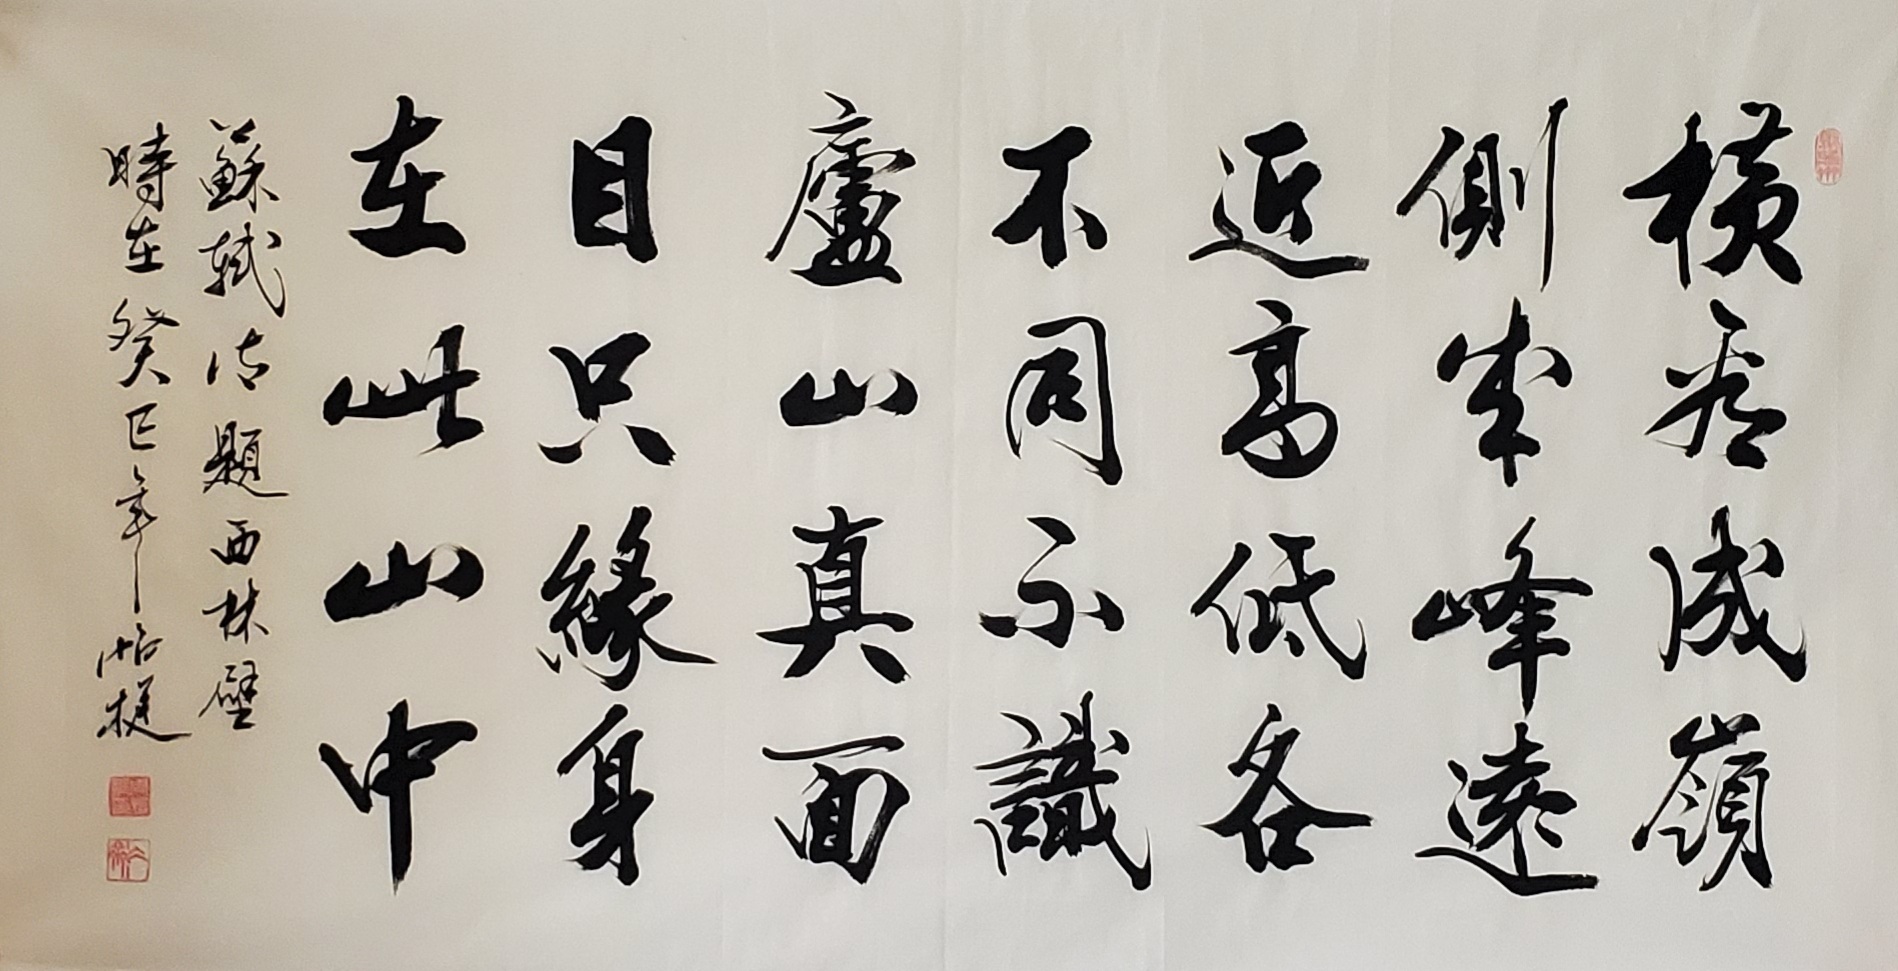 橫看成嶺
側成峰遠
近高低各
不同不識
廬山真面
目只緣身
在此山中
蘇軾詩題西林壁
時在癸巳年